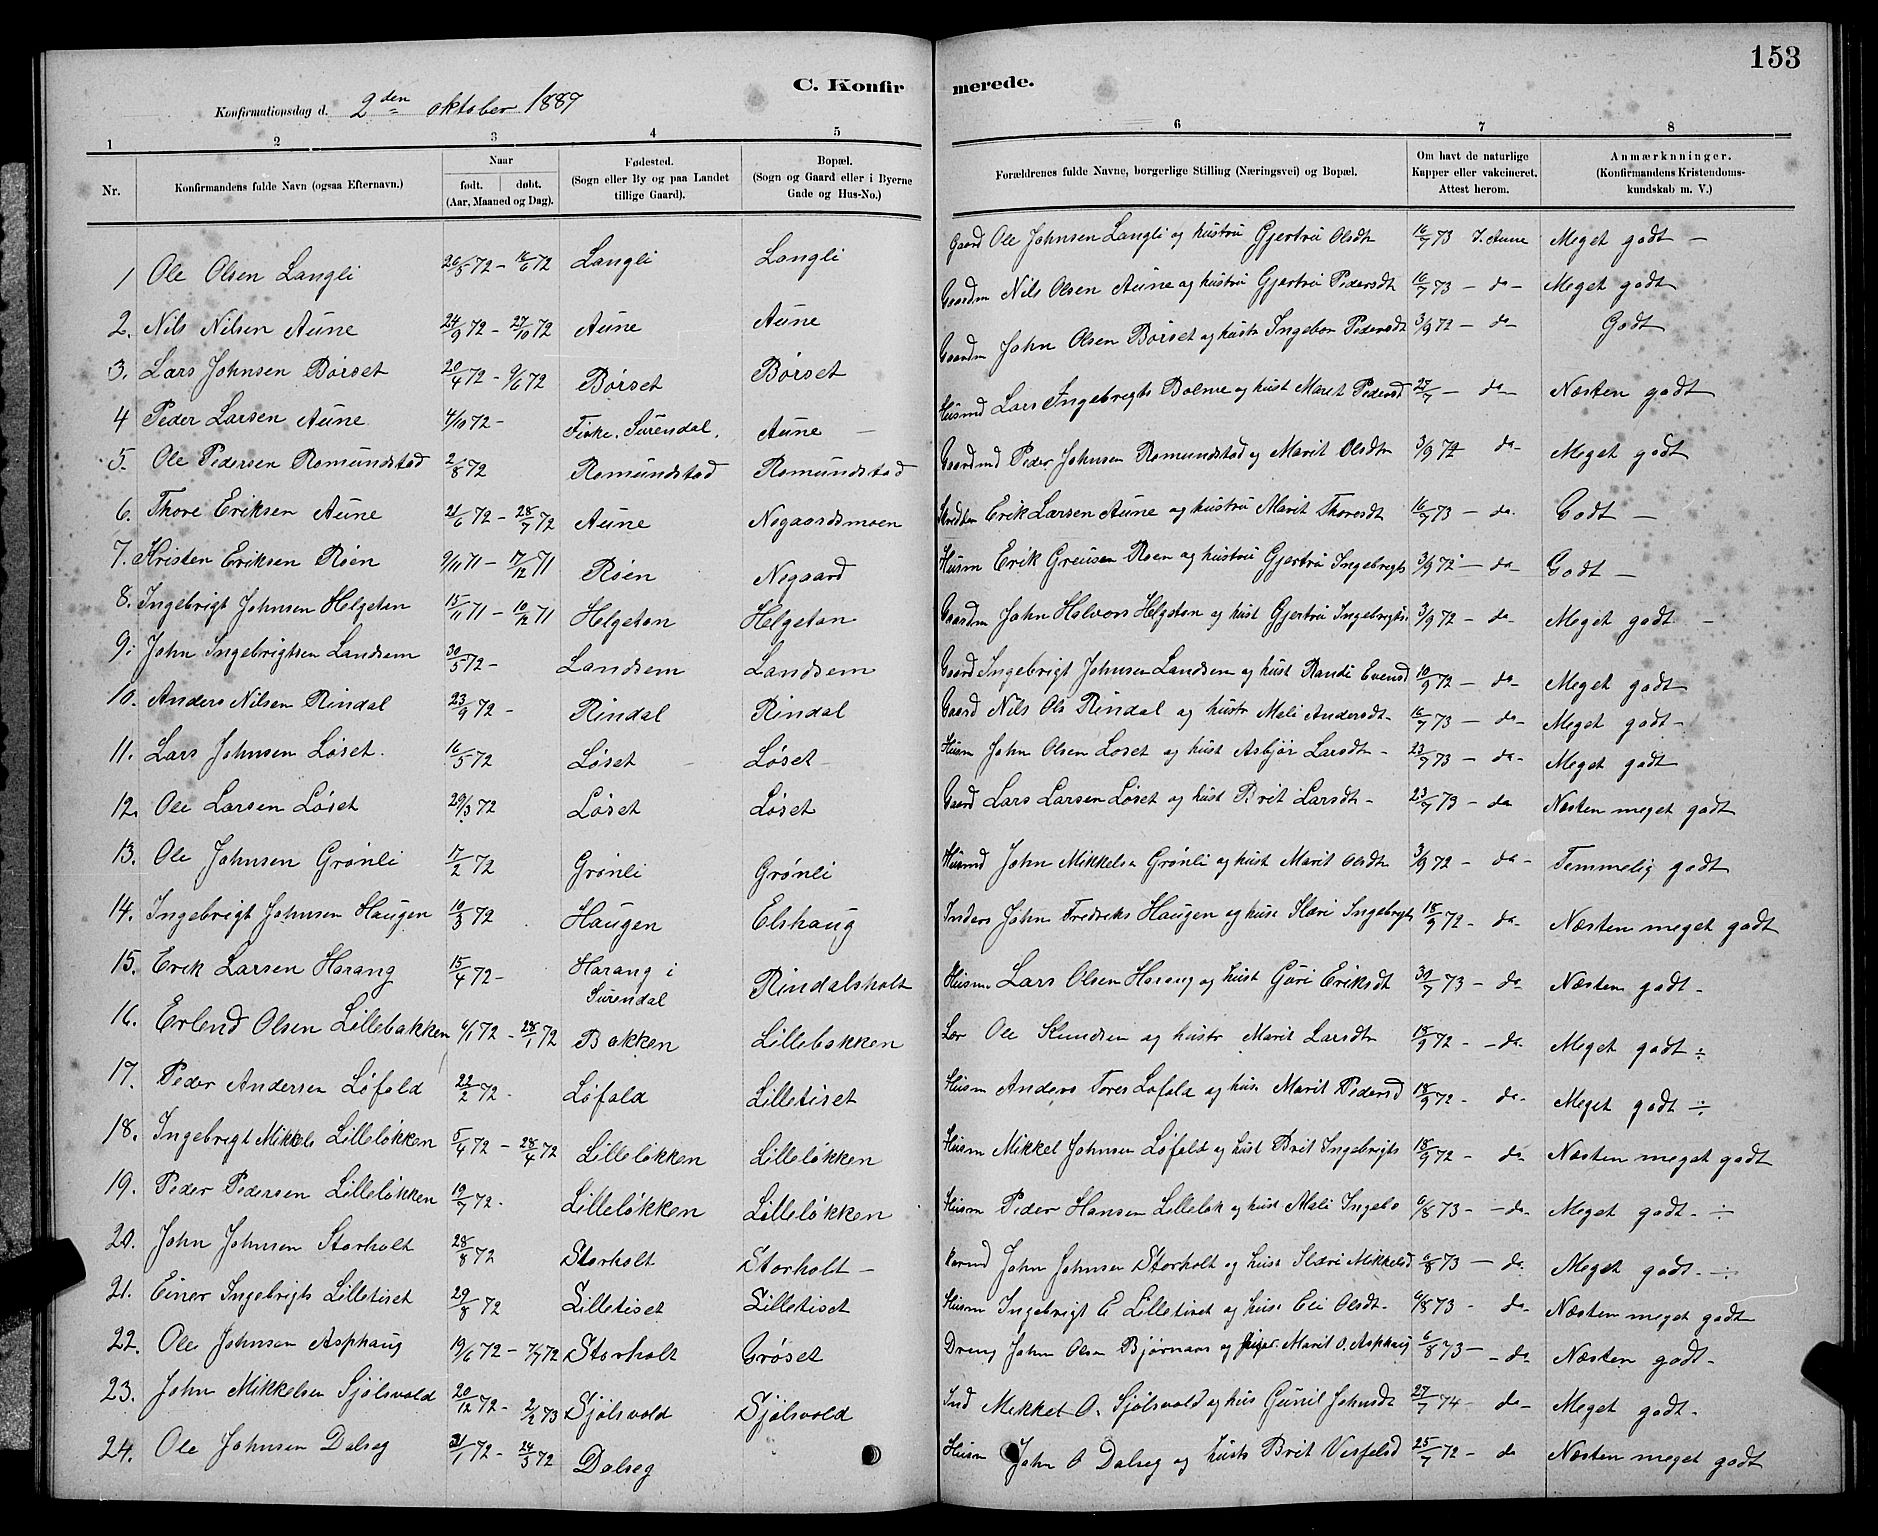 153
C. Konfirmerede.
Konfirmationsdag d. 2den oktober 1887
1 2 3 4 5 6 7 8
Nr. Konfirmandens fulde Navn (ogsaa Efternavn.) Naar født. døbt. (Aar, Maaned og Dag). Fødested. (Sogn eller By og paa Landet tillige Gaard). Bopæl. (Sogn og Gaard eller i Byerne Gade og Hus-No.) Forældrenes fulde Navne, borgerlige Stilling (Næringsvei) og Bopæl. Om havt de naturlige Kapper eller vakcineret. Attest herom. Anmærknninger. (Konfirmandens Kristendomskundskab m. V.)
1 Ole Olsen Langli 26/5 72 - 16/6 72 Langli Langli Gaard Ole Johnsen Langli og hustru Gjertru Olsdt 16/7 73 J. Aune Meget godt -
2. Nils Nilsen Aune 24/9 72 - 27/10 72 Aune Aune Gaardm Nils Olsen Aune og hustru Gjertru Pedersdt 16/7 73 - do - Meget godt
3. Lars Johnsen Börset 20/4 72 - 9/6 72 Börset Börset Gaardm John Olsen Börset og hustr Ingebor Pedersdt 3/9 72 - do Godt
4 Peder Larsen Aune 4/10 72 - Fiske. Surendal. Aune - Husmd Lars Ingebrigts Bolme og hust Marit Pedersd 27/7 - do - Næsten godt
5. Ole Pedersen Romundstad 2/8 72 Romundstad Romundstad Gaardmd Peder Johnsen Romundstad og Marit Olsdt 3/9 72 do - Meget godt
6. Thore Eriksen Aune 21/6 72 - 28/7 72 Aune Nogaardsmoen Erik Larsen Aune og hustru Marit Thoresdt 16/7 73 - do. Godt -
7. Kristen Eriksen Röen 9/11 71 - 17/12 71 Röen Nogaard Husm Erik Greusen Roen og hustru Gjertru Ingebrigts 3/9 72 - do - Godt -
8. Ingebrigt Johnsen Helgetan 15/11 71 - 10/12 71 Helgetan Helgetan Gaardm John Halvors Helgetan og hust Gjertru Ingebrigts 3/9 72 - do - Meget godt -
9. John Ingebrigtsen Landsem 30/5 72 - Landsem Landsem Gaard Ingebrigt Johnsen Landsem og hust Randi Evensd 10/9 72 - do - Meget godt
10. Anders Nilsen Rindal 23/9 72 - Rindal Rindal Gaard Nils Ols Rindal og hustr Mali Andersdt - 16/7 73 - do - Meget godt -
11. Lars Johnsen Löset. 16/5 72 Löset - Löset - Husm John Olsen Löset og hust Asbjör Larsdt - 23/7 73 - do - Meget godt
12. Ole Larsen Löset 29/3 72 Löset Löset Gaard Lars Larsen Löset og hust Brit Larsdt - 23/7 73 - do Næsten meget godt
13. Ole Johnsen Grönli 17/2 72 Grönli Grönli Husmd John Mikkelsn Grönli og hust Marit Olsdt 3/9 72 - do - Temmelig godt
14. Ingebrigt Johnsen Haugen 10/3 72 Haugen Elshaug Inders John Fredriks Haugen og hus Slæri Ingebrigts 18/9 72 - do - Næsten meget godt
15. Erik Larsen Harang 15/4 72 - Harang i Surendal Rindalsholt Husm Lars Olsen Harang og hust Guri Eriksdt 30/7 73 - do - Næsten godt -
16. Erlend Olsen Lillebakken 6/1 72 - 28/1 72 Bakken Lillebakken Lær Ole Knudsen og hustr Marit Larsdt 18/9 72 - - do - Meget godt ÷
17. Peder Andersen Löfald 22/2 72 - Löfald Lilletiset Husm Anders Tores Löfald og hus Marit Pedersd 18/9 72 - do - Meget godt ÷
18. Ingebrigt Mikkels Lillelökken 5/4 72 - 28/4 72 Lillelökken Lillelökken Husm Mikkel Johnsen Löfald og hust Brit Ingebrigts 18/9 72 - do - Næsten meget godt
19. Peder Pedersen Lillelökken 19/7 72 - Lillelökken Lillelökken Husm Peder Hansen Lillelök og hust Mali Ingebo 6/8 73 - - do - Meget godt - ÷
20. John Johnsen Storholt 28/8 72 Storholt Storholt - John Johnsen Storholt og hust Slæri Mikkelsd 6/8 73 - do Meget godt - ÷
21. Einer Ingebrigts Lilletiset 29/8 72 Lilletiset Lilletiset Husm Ingebrigt E Lilletiset og hus Eli Olsdt - 6/8 73 - do - Næsten meget godt
22. Ole Johnsen Asphaug 19/6 72 - 7/7 72 Storholt Gröset Dreng John Olsen Bjørnaas og pige Marit O. Asphaug 6/8 73 - - do Næsten godt -
23. John Mikkelsen Sjölsvold 20/12 72 - 2/2 73 Sjölsvold Sjölsvold Ind Mikkel O. Sjölsvold og hus Gunil Johnsdt 27/7 74 - do - Meget godt -
24. Ole Johnsen Dalseg 31/1 72 - 24/3 72 Dalseg Husm John O Dalseg og hustr Brit 25/7 72 - do Næsten meget godt